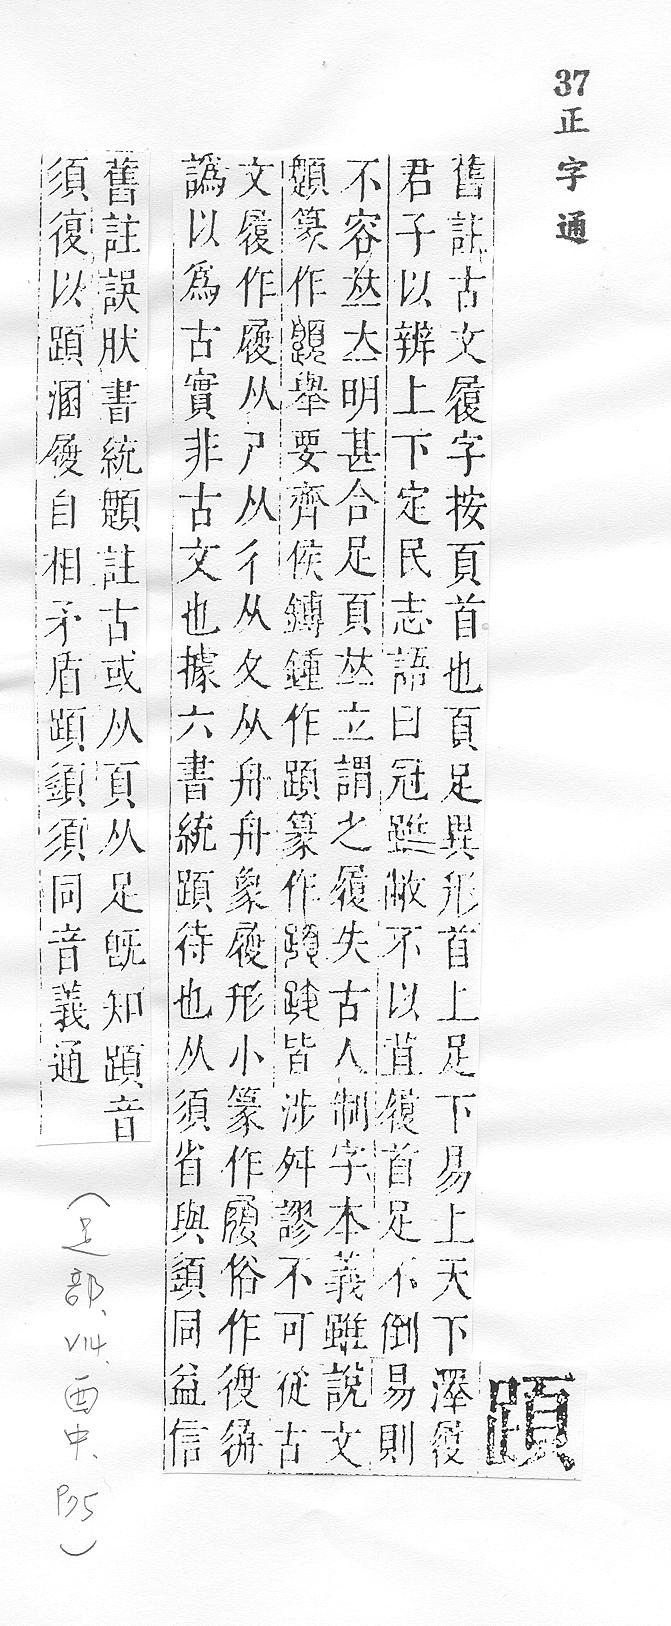 37正字通
䠱
舊註古文履字按頁首也頁足異形首上足下易上天下澤履
君子以辨上下定民志語曰冠雖敝不以苴履首足不倒易則
不容𠀤𠀤明甚合足頁𠀤立謂之履失古人制字本義雖說文
篆作舉要齊侯鏄鍾作䠱篆作皆涉舛謬不可從古
文履作履从尸从彳从夂从舟舟象履形小篆作履俗作復
譌以爲古實非古文也據六書統䠱待也从須省與䇓同益信
舊註誤肰書統註古或从頁从足旣知䠱音
須復以䠱溷履自相矛盾䠱䇓須同音義通
(足部、V14、酉中、P75)